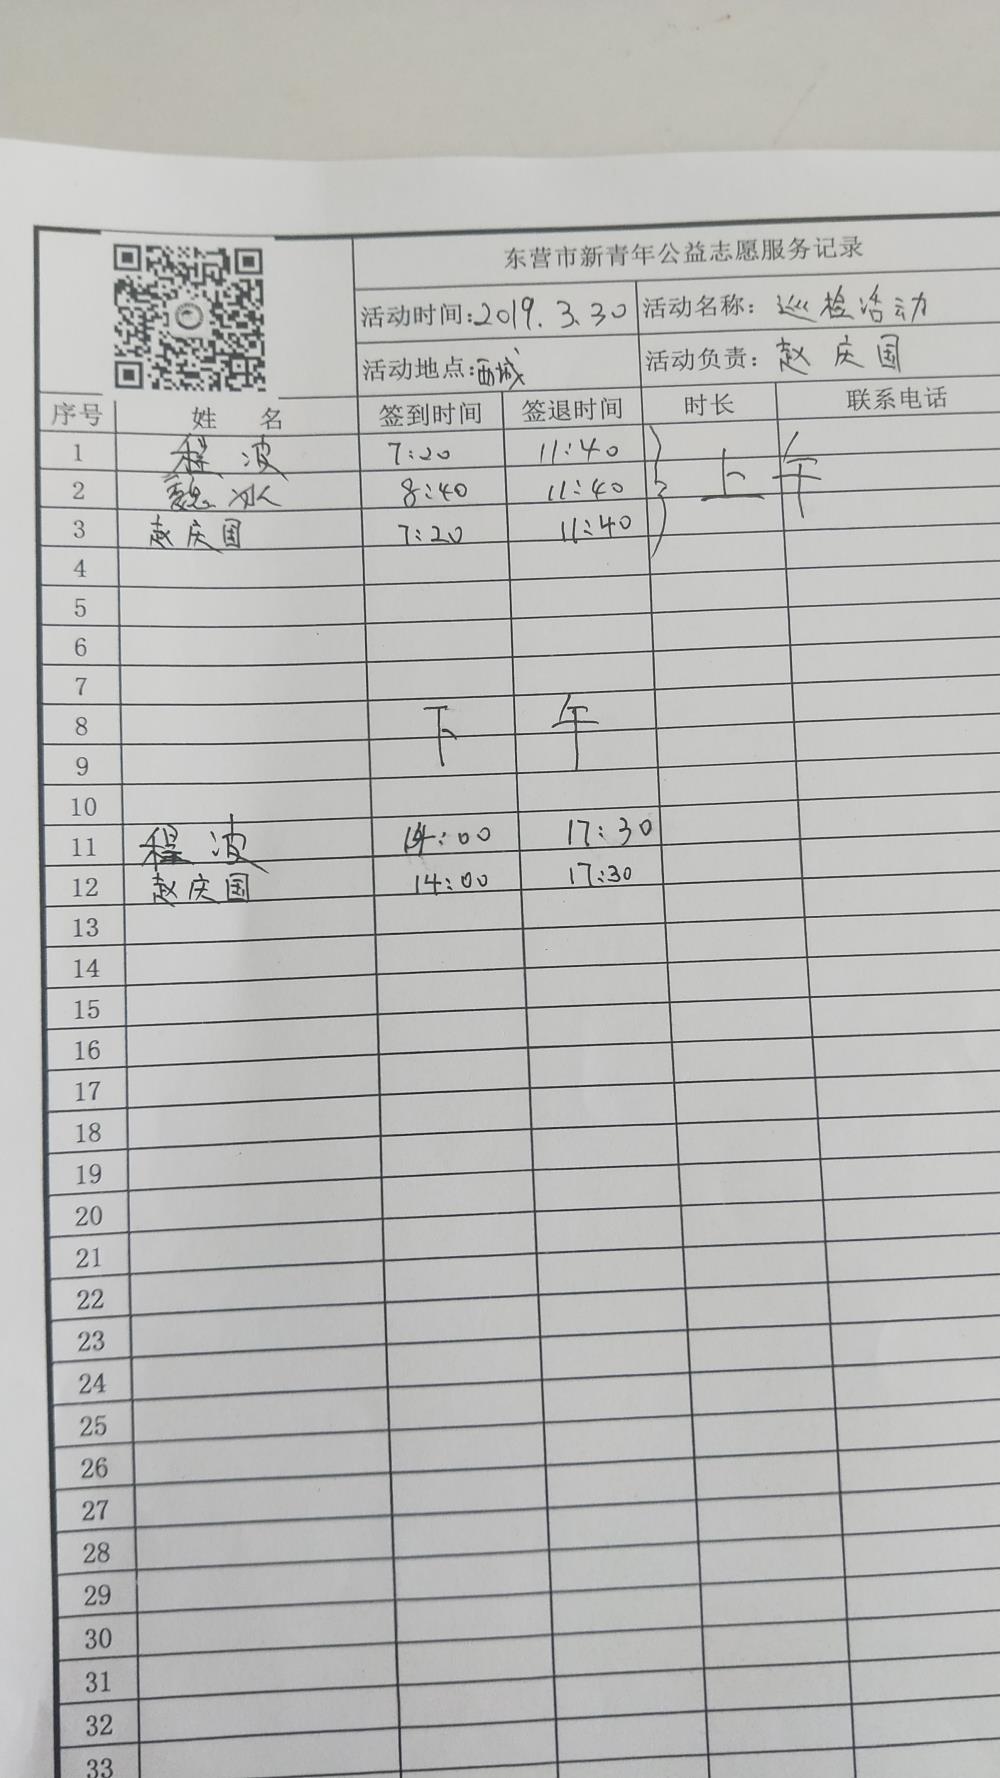 东营市新青年公益志愿服务记录
活动时间:2019.3.30 活动名称: 巡检活动
活动地点:西城 活动负责: 赵庆国
序号 姓 名 签到时间 签退时间 时长 联系电话
1 程波 7:20 11:40
2 魏 8:40 11:40 上午
3 赵庆国 7:20 11:40
4
5
6
7
8 下午
9
10
11 程波 14:00 17:30
12 赵庆国 14:00 17:30
13
14
15
16
17
18
19
20
21
22
23
24
25
26
27
28
29
30
31
32
33